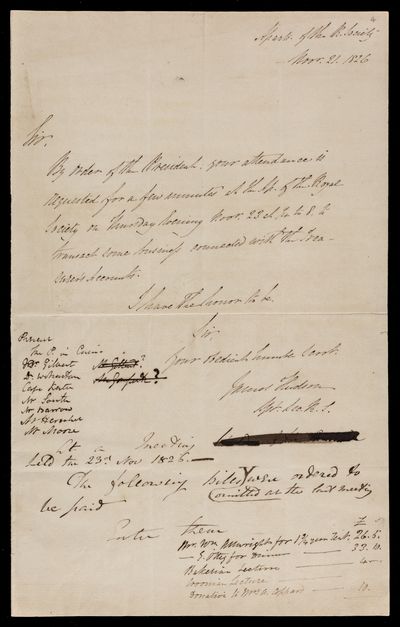 4
Apart. of the R. Society
Nov. 21. 1826
Sir,
By order of the President, your attendance is
requested for a few minutes at the Ap. of the Royal
Society on Thursday Evening Novr. 23 at ¼ to 8, to
transact some business connected with the Trea-
surers Accounts.
I have the honor to be,
Sir,
Your Obedient humble Servt.
James Hudson
Ast. Sec. R. S.
Present
The P. in Chair
Mr. Gilbert
Dr. Wollaston
Capt. Kater
Mr South
Mr Barrow
Mr Herschel
Mr Moore
At a Meeting
held the 23rd. Nov 1826.—
The following Bills were ordered to
omitted at the last meeting
be paid
Enter these
£ s
Mr. Wm. for 1¾ year 26.5.
— E. for 33.10.
Bakerian Lecture 4
Croonian Lecture
Donation to Mrs. 10.